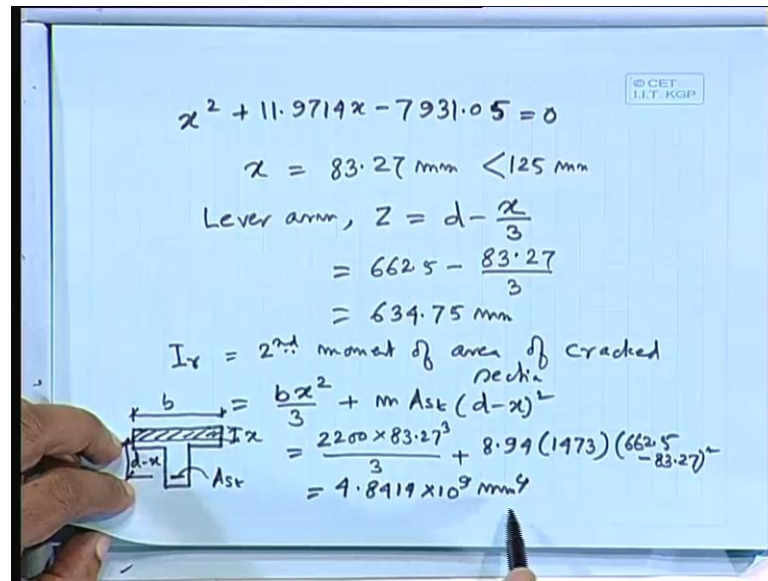 © CET
I.I.T. KGP
x² + 11.9714x - 7931.05 = 0
x = 83.27 mm < 125 mm
Lever arm, Z = d - x/3
= 662.5 - 83.27/3
= 634.75 mm
Ir = 2nd moment of area of cracked
section
= bx²/3 + m Ast (d-x)²
= 2200 × 83.27³/3 + 8.94 (1473) (662.5 - 83.27)²
= 4.8414 × 10⁹ mm⁴
b
x
d-x
Ast